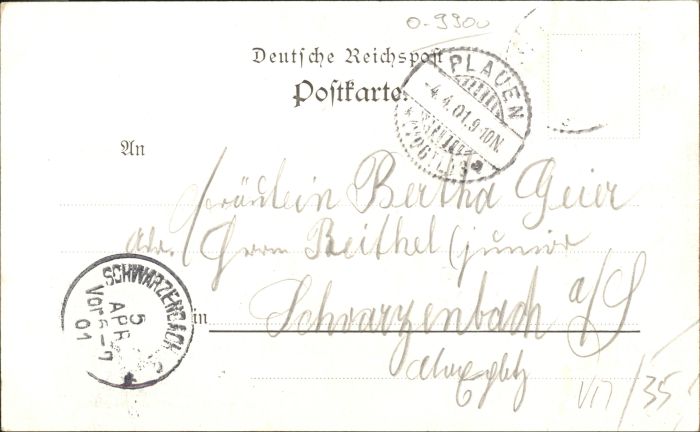 0-9900
Deutsche Reichspost
Postkarte.
PLAUEN
-4.4.01.9-10N.
An
Fräulein Bertha Geier
adr. Herrn Beithel junior
in Schwarzenbach a/S
SCHWARZENBACH
5
APR
Vor 6-7
01
VII/35